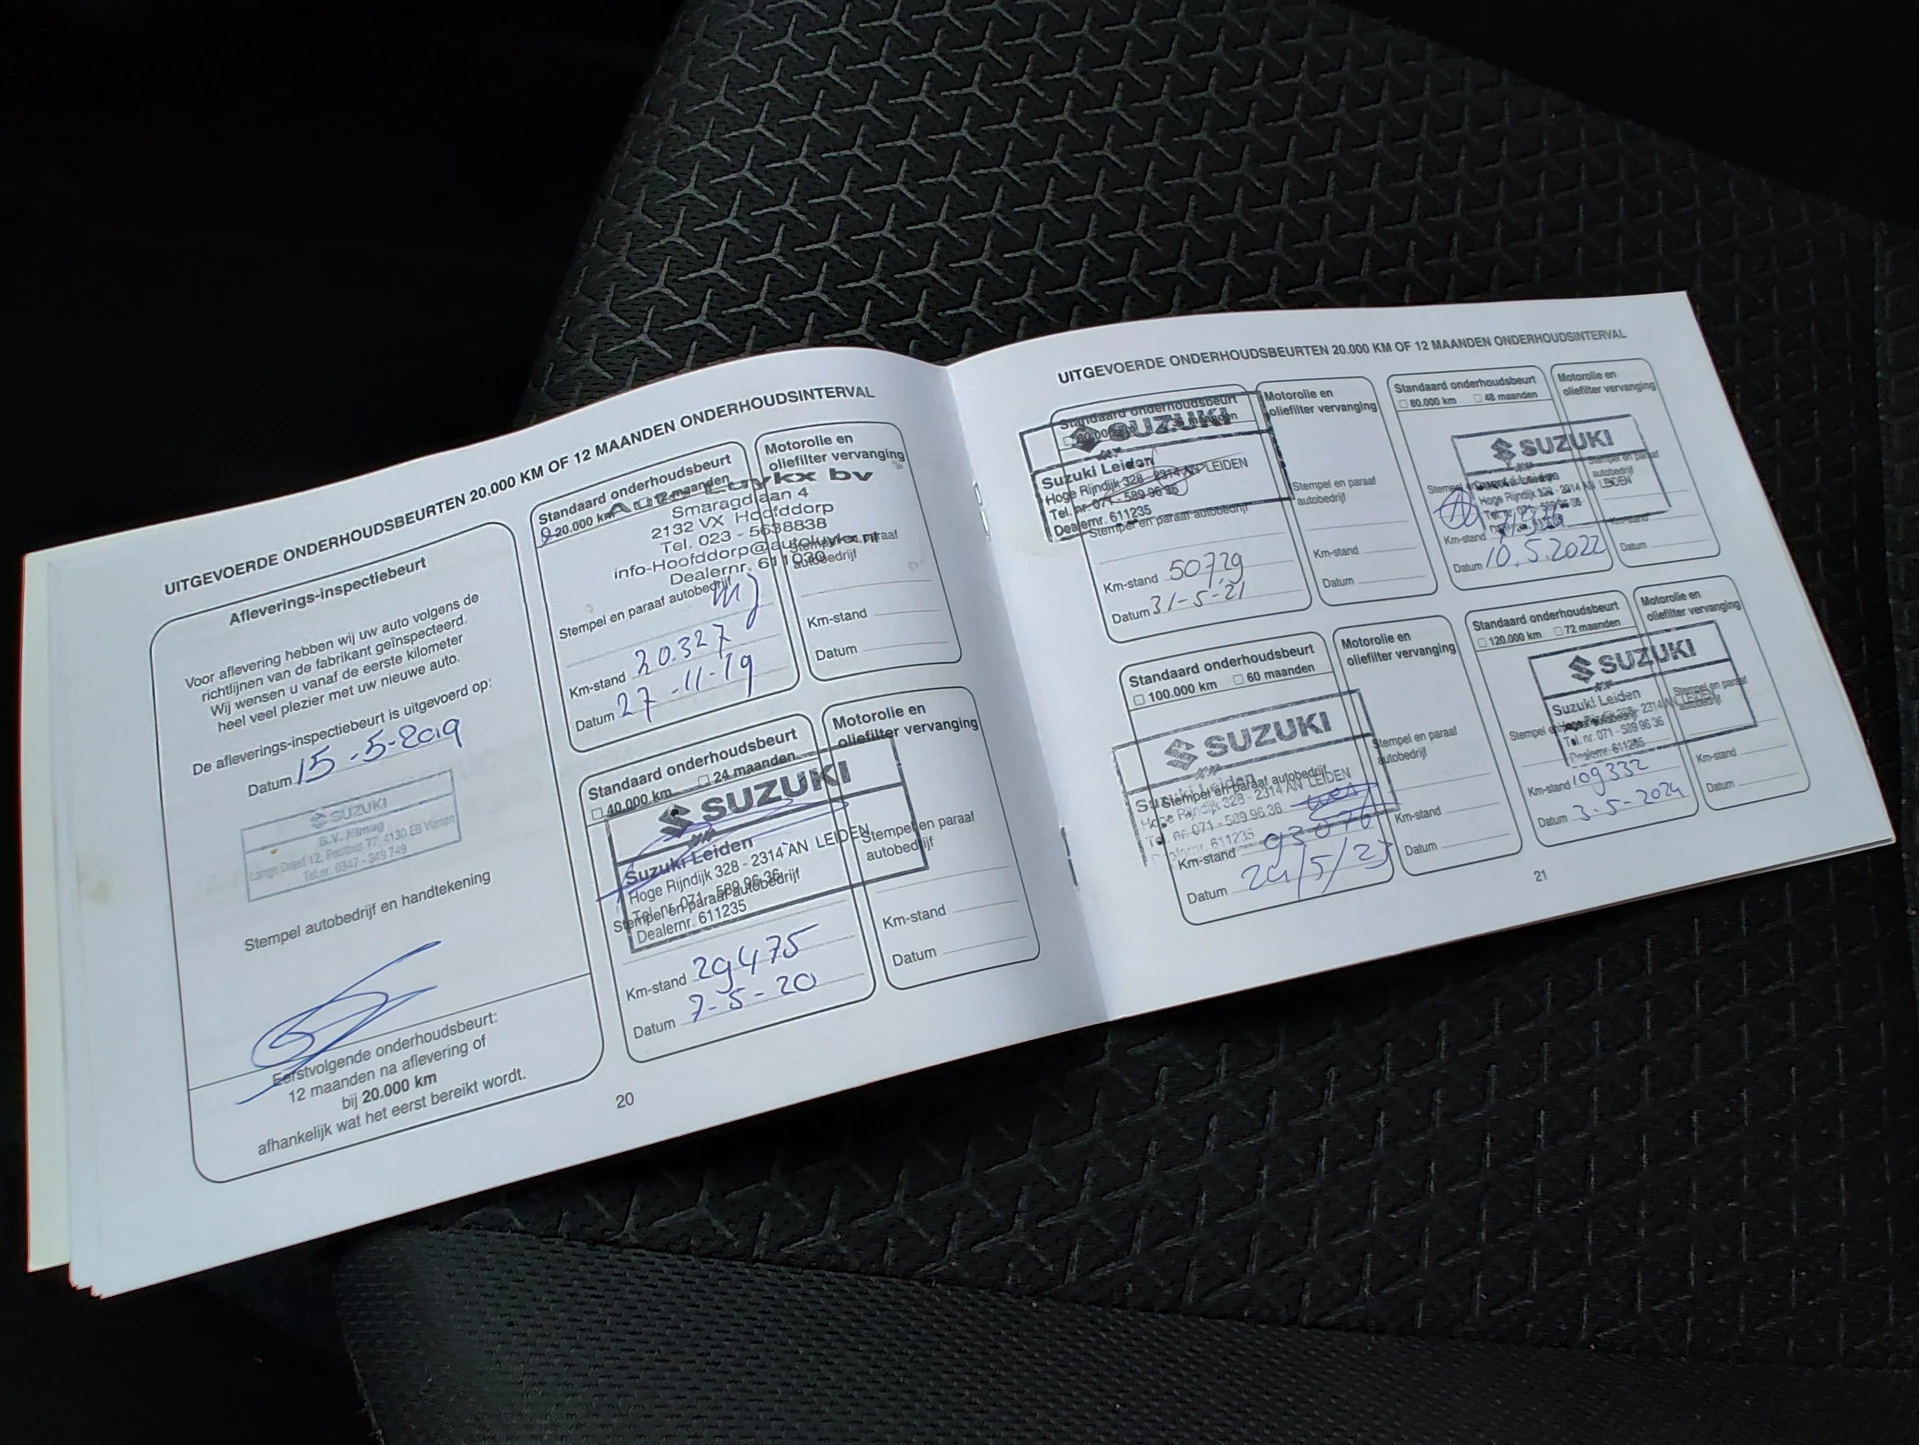 UITGEVOERDE ONDERHOUDSBEURTEN 20.000 KM OF 12 MAANDEN ONDERHOUDSINTERVAL
Afleverings-inspectiebeurt
Voor aflevering hebben wij uw auto volgens de
richtlijnen van de fabrikant geïnspecteerd.
Wij wensen u vanaf de eerste kilometer
heel veel plezier met uw nieuwe auto.
De afleverings-inspectiebeurt is uitgevoerd op:
Datum 15-5-2019
SUZUKI
B.V. Nimag
Lange Dreef 12, Postbus 77, 4130 EB Vianen
Tel.nr. 0347 - 349 749
Stempel autobedrijf en handtekening
Eerstvolgende onderhoudsbeurt:
12 maanden na aflevering of
bij 20.000 km
afhankelijk wat het eerst bereikt wordt.
Standaard onderhoudsbeurt
20.000 km 12 maanden
Luykx bv
Smaragdlaan 4
2132 VX Hoofddorp
Tel. 023 - 5638838
info-Hoofddorp@autoluykx.nl
Dealernr. 611030
Stempel en paraaf autobedrijf
Km-stand 20.327
Datum 27-11-19
Motorolie en
oliefilter vervanging
Stempel en paraaf
autobedrijf
Km-stand
Datum
Standaard onderhoudsbeurt
40.000 km 24 maanden
SUZUKI
Suzuki Leiden
Hoge Rijndijk 328 - 2314 AN LEIDEN
Tel. nr. 071 - 589 96 36
Stempel en paraaf autobedrijf
Dealernr. 611235
Km-stand 29475
Datum 7-5-20
Motorolie en
oliefilter vervanging
Stempel en paraaf
autobedrijf
Km-stand
Datum
20
UITGEVOERDE ONDERHOUDSBEURTEN 20.000 KM OF 12 MAANDEN ONDERHOUDSINTERVAL
Standaard onderhoudsbeurt
maanden
SUZUKI
Suzuki Leiden
Hoge Rijndijk 328 - 2314 AN LEIDEN
Tel. nr. 071 - 589 96 36
Dealernr. 611235
Stempel en paraaf autobedrijf
Km-stand 50729
Datum 31-5-21
Motorolie en
oliefilter vervanging
Stempel en paraaf
autobedrijf
Km-stand
Datum
Standaard onderhoudsbeurt
80.000 km 48 maanden
SUZUKI
Hoge Rijndijk 328 - 2314 AN LEIDEN
Km-stand
Datum 10.5.2022
Motorolie en
oliefilter vervanging
Stempel en paraaf
autobedrijf
Km-stand
Datum
Standaard onderhoudsbeurt
100.000 km 60 maanden
SUZUKI
Suzuki Leiden
Stempel en paraaf autobedrijf
Hoge Rijndijk 328 - 2314 AN LEIDEN
Tel. nr. 071 - 589 96 36
Dealernr. 611235
Km-stand 93076
Datum 24/5/23
Motorolie en
oliefilter vervanging
Stempel en paraaf
autobedrijf
Km-stand
Datum
Standaard onderhoudsbeurt
120.000 km 72 maanden
SUZUKI
Suzuki Leiden
Hoge Rijndijk 328 - 2314 AN LEIDEN
Tel. nr. 071 - 589 96 36
Dealernr. 611235
Km-stand 109332
Datum 3-5-2024
Motorolie en
oliefilter vervanging
Stempel en paraaf
autobedrijf
Km-stand
Datum
21